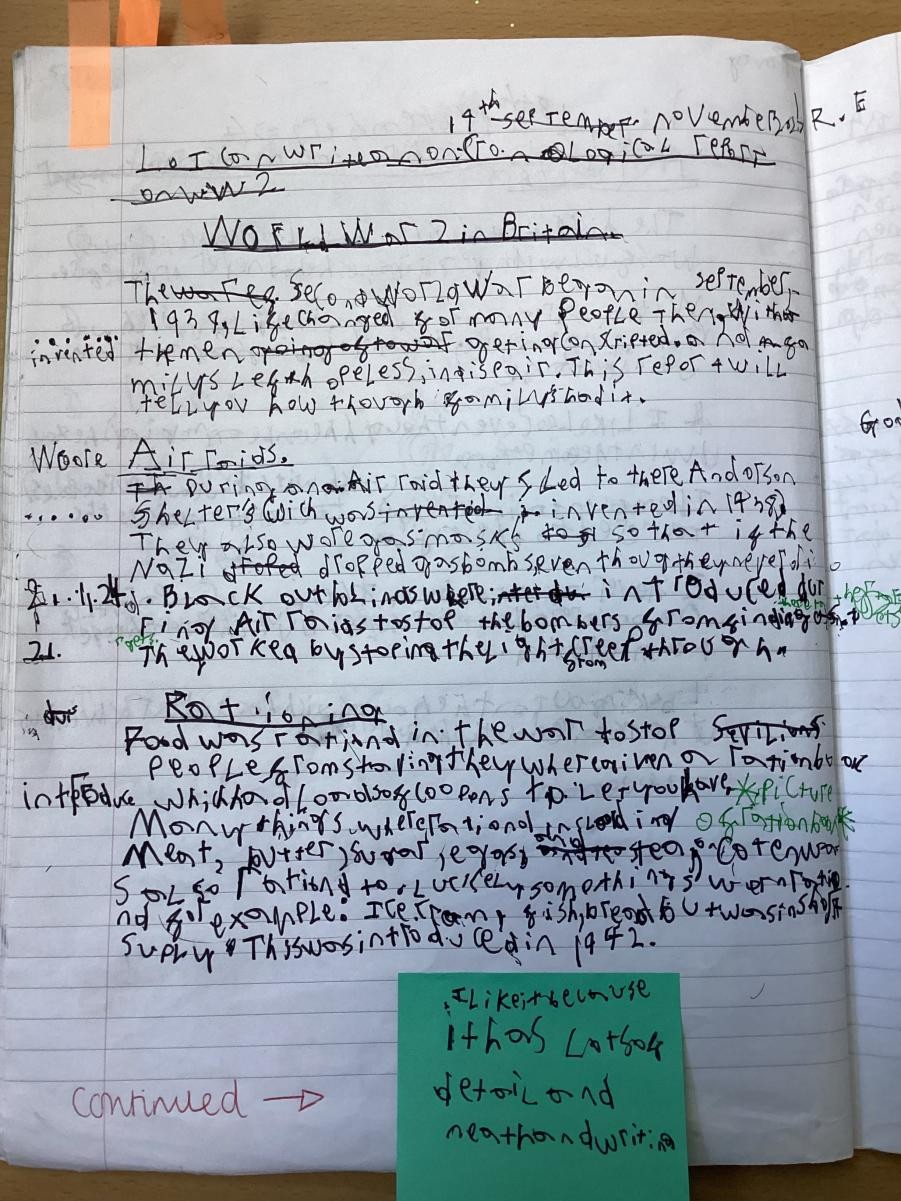 19th september november R.E
Lo I can write a non cron ological report
on WW2
World War 2 in Britain.
The war Second World War began in september,
1939, Life changed for many People
invented the men going of to war geting conscripted. a
milys Left h opeless, in dispair. This report will
tell you how though family's had it.
Woore Air raids.
During an Air raid they fled to there Anderson
Shelter's wich was invented invented in 1938
They also wore gas masks so that if the
Nazi droped dropped gas bombs, even though they never di
21.11.24 Black out blinds where, introduced du
ring Air raids to stop the bombers from finding
21. They worked by stoping the light from
Rationing
Food was rationd in the war to stop
People from starving they where given a ration book
introduce which had loads of coopens to let you have *picture
Many things where rationd including of ration book*
Meat, butter, sugar, eggs, and tea
s also rationd to. Luckely some things wern ratio
nd for example: Icecream, fish, bread but was in short
supply. This was introduced in 1942.
I like it because
it has Lots of
detail and
neat handwriting
continued →